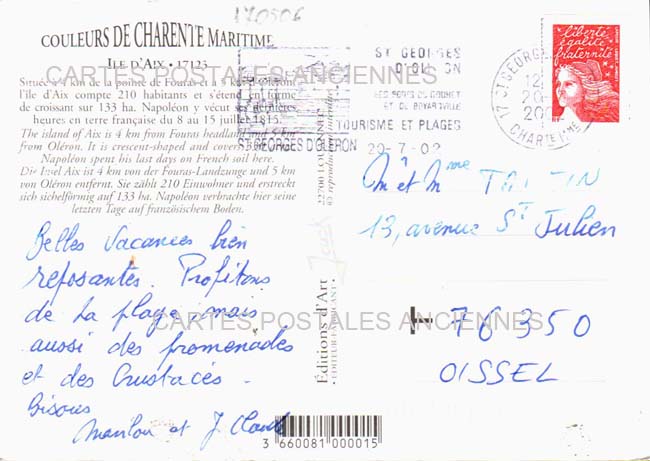 170506
COULEURS DE CHARENTE MARITIME
ILE D'AIX • 17123
Située à 4 km de la pointe de Fouras et à 5 km d'Oléron,
l'île d'Aix compte 210 habitants et s'étend en forme
de croissant sur 133 ha. Napoléon y vécut ses dernières
heures en terre française du 8 au 15 juillet 1815.
The island of Aix is 4 km from Fouras headland and 5 km
from Oléron. It is crescent-shaped and covers
Napoléon spent his last days on French soil here.
Die Insel Aix ist 4 km von der Fouras-Landzunge und 5 km
von Oléron entfernt. Sie zählt 210 Einwohner und erstreckt
sich sichelförmig auf 133 ha. Napoléon verbrachte hier seine
letzten Tage auf französischem Boden.
CARTES POSTALES ANCIENNES
ST GEORGES
D'OLERON
LES PORTS DU DOUHET
ET DE BOYARDVILLE
TOURISME ET PLAGES
ST GEORGES D'OLERON
29-7-02
17 ST GEORGES
CHARENTE MME
liberté
égalité
fraternité
RF
Belles Vacances bien
reposantes. Profitons
de la plage mais
aussi des promenades
et des Crustacés.
Bisous
Marilou et J. Claude
Editions d'Art
• EDITEUR-FABRICANT •
© reproduction interdite
M et Mme
13, avenue St Julien
76350
OISSEL
CARTES POSTALES ANCIENNES
3 660081 000015